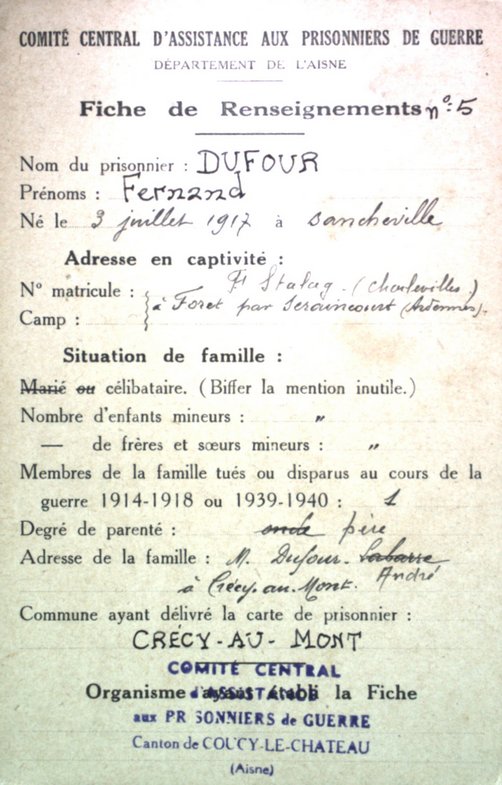 COMITÉ CENTRAL D'ASSISTANCE AUX PRISONNIERS DE GUERRE
DÉPARTEMENT DE L'AISNE
Fiche de Renseignements nº: 5
Nom du prisonnier : DUFOUR
Prénoms : Fernand
Né le 3 juillet 1917 à Sancheville
Adresse en captivité :
Nº matricule : Ft Stalag. (Charlevilles.)
Camp : à Foret par Seraincourt (Ardennes)
Situation de famille :
Marié ou célibataire. (Biffer la mention inutile.)
Nombre d'enfants mineurs : "
— de frères et sœurs mineurs : "
Membres de la famille tués ou disparus au cours de la
guerre 1914-1918 ou 1939-1940 : 1
Degré de parenté : oncle père
Adresse de la famille : M. Dufour - Labarre
à Crécy-au-Mont. André
Commune ayant délivré la carte de prisonnier :
CRÉCY-AU-MONT
COMITÉ CENTRAL
Organisme ayant établi la Fiche
d'ASSISTANCE
aux PRISONNIERS de GUERRE
Canton de COUCY-LE-CHATEAU
(Aisne)